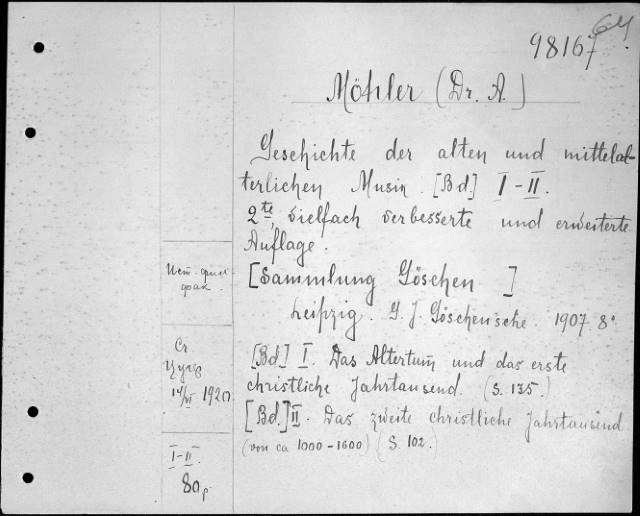 98167
Möhler (Dr. A.)
Geschichte der alten und mittelal-
terlichen Musik. [Bd] I-II.
2te, vielfach verbesserte und erweiterte
Auflage.
[Sammlung Göschen]
Leipzig. G. J. Göschen'sche. 1907. 8°
[Bd] I. Das Altertum und das erste
christliche Jahrtausend. (S. 135.)
[Bd.] II. Das zweite christliche Jahrtausend
(von ca 1000-1600) (S. 102.)
Ист. фил
фак.
Ст
14/VI 1920
I-II.
80р